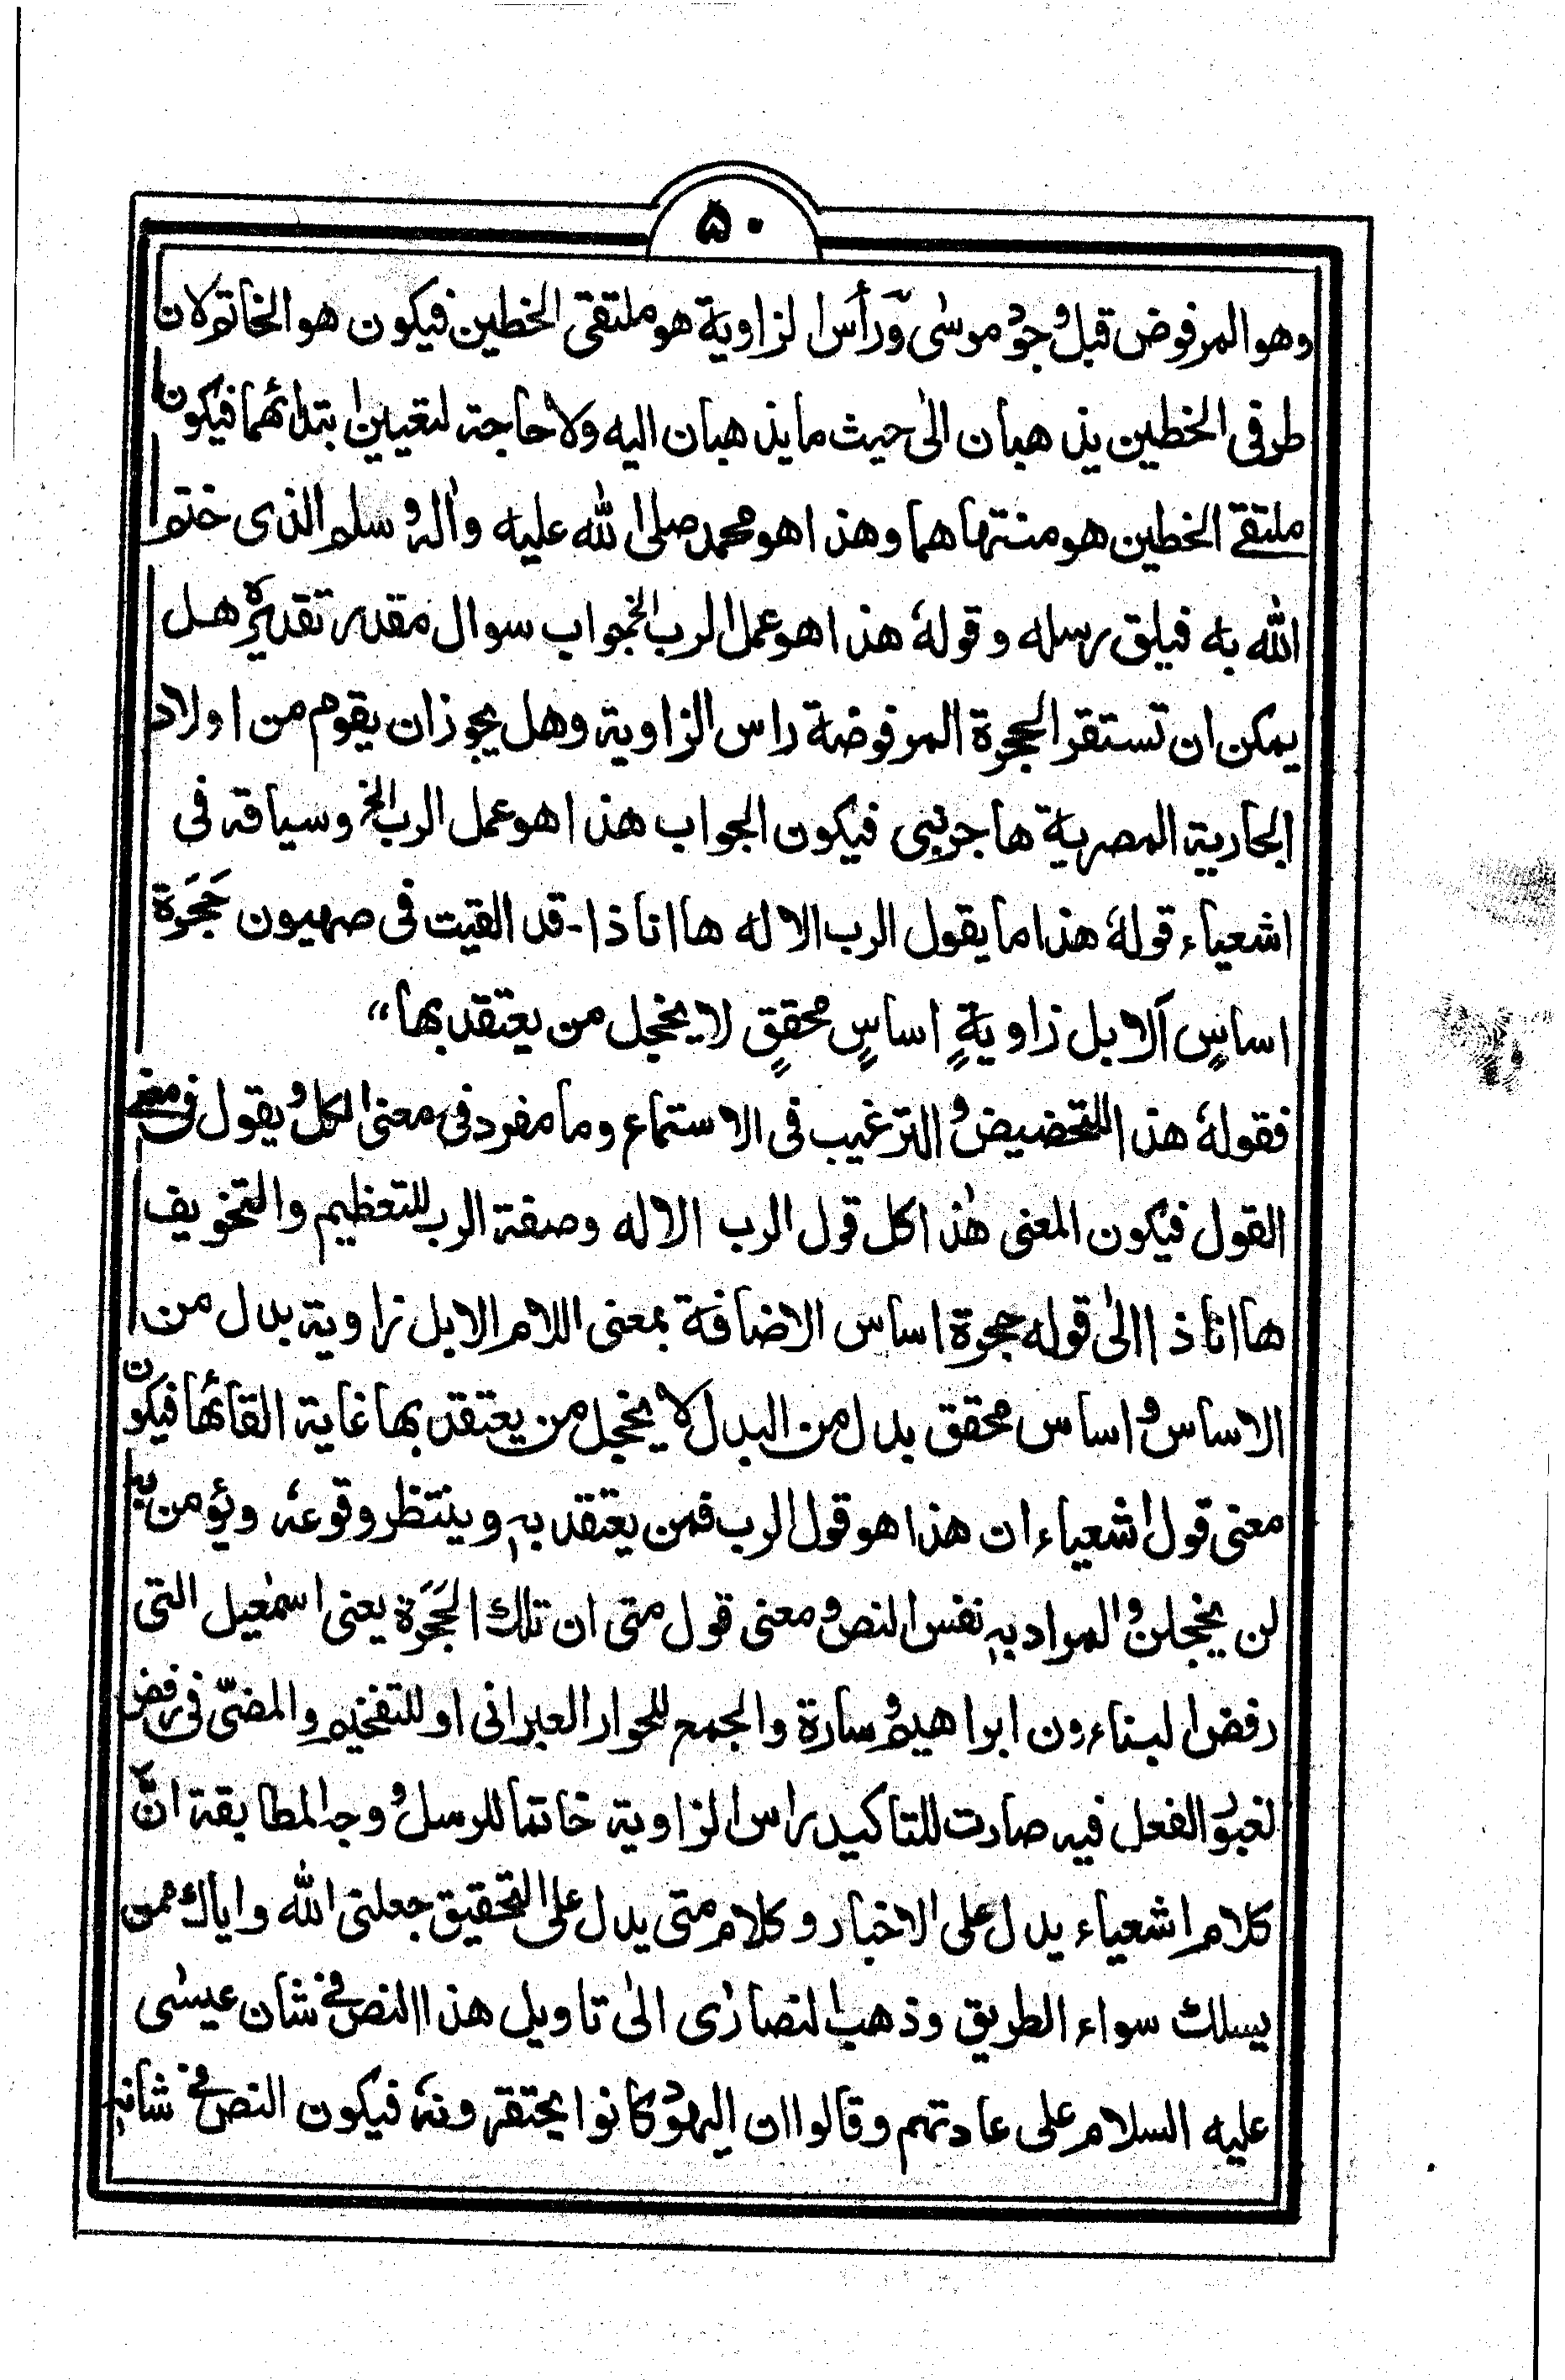 ۵۰
وهو المرفوض قبل وجود موسٰى ورأس الزاوية هو ملتقى الخطين فيكون هو الخاتم لان
طرفى الخطين يذهبان الىٰ حيث ما يذهبان اليه ولا حاجة لتعيين ابتدائهما فيكون
ملتقے الخطين هو منتهاهما وهذا هو محمد صلى الله عليه واٰله وسلم الذى ختم
الله به فيلق رسله وقولهٗ هذا هو عمل الرب الخ جواب سوال مقدر تقديرهٗ هل
يمكن ان تستقر الحجرة المرفوضة راس الزاوية وهل يجوز ان يقوم من اولاد
الجارية المصرية هاجر نبى فيكون الجواب هذا هو عمل الرب الخ وسياقه فى
اشعياء قولهٗ هذا ما يقول الرب الاله ها انا ذا- قد القيت فى صهيون حَجَرَة
اساسٍ اٰلا بل زاويةٍ اساسٍ محققٍ لا يخجل من يعتقد بها “
فقولهٗ هذا للتحضيض والترغيب فى الاستماع وما مفرد فى معنى الكل ويقول فى معنے
القول فيكون المعنى هٰذا كل قول الرب الاله وصفة الرب للتعظيم والتخويف
ها انا ذا الىٰ قوله حجرة اساس الاضافة بمعنى اللام الا بل زاوية بدل من
الاساس واساس محقق بدل من البدل لا يخجل من يعتقد بها غاية القائها فيكون
معنى قول اشعياء ان هذا هو قول الرب فمن يعتقد بهٖ وينتظر وقوعهٗ ويؤمن بهٖ
لن يخجلن والمراد بهٖ نفس النص ومعنى قول متى ان تلك الحَجَرَة يعنى اسمٰعيل التى
رفض البناءون ابراهيم وسارة والجمع للحوار العبرانى او للتفخيم والمضىّ فى رفض
لغبوّ الفعل فيه صارت للتاكيد راس الزاوية خاتما للرسل ووجه المطابقة انّ
كلام اشعياء يدل على الاخبار وكلام متى يدل على التحقيق جعلنى الله واياك ممن
يسلك سواء الطريق وذهب النصارٰى الىٰ تاويل هذا النص فے شان عيسٰى
عليه السلام على عادتهم وقالوا ان اليهود كانوا يحتقرونهٗ فيكون النص فے شانهٖ